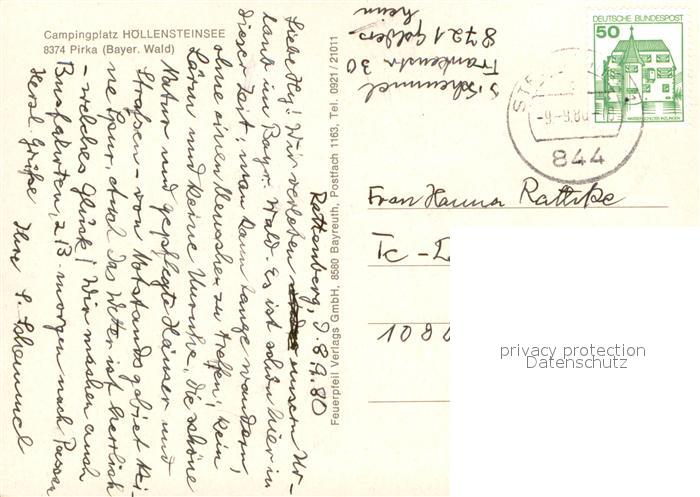 Campingplatz HÖLLENSTEINSEE
8374 Pirka (Bayer. Wald)
Rattenberg, 9.89.80
Liebe Hly! Wir verleben unsern Ur-
laub im Bayr. Wald. Es ist schön hier in
dieser Zeit, man kann lange wandern,
ohne einen Menschen zu treffen, kein
Lärm und keine Unruhe, die schöne
Natur und gepflegte Häuser und
Straßen - von Notstandsgebiet kei-
ne Spur, auch das Wetter ist herrlich
- welches Glück! Wir machen auch
Busfahrten, z. B. morgen nach Passau
Herzl. Grüße
Ihre S. Schemmel
Feuerpfeil Verlags GmbH, 8580 Bayreuth, Postfach 1163, Tel. 0921 / 21011
S. Schemmel
Frankenstr 30
8721
heim
DEUTSCHE BUNDESPOST
50
WASSERSCHLOSS INZLINGEN
-9.-9.80
844
Frau Hanna Rattke
108
privacy protection
Datenschutz